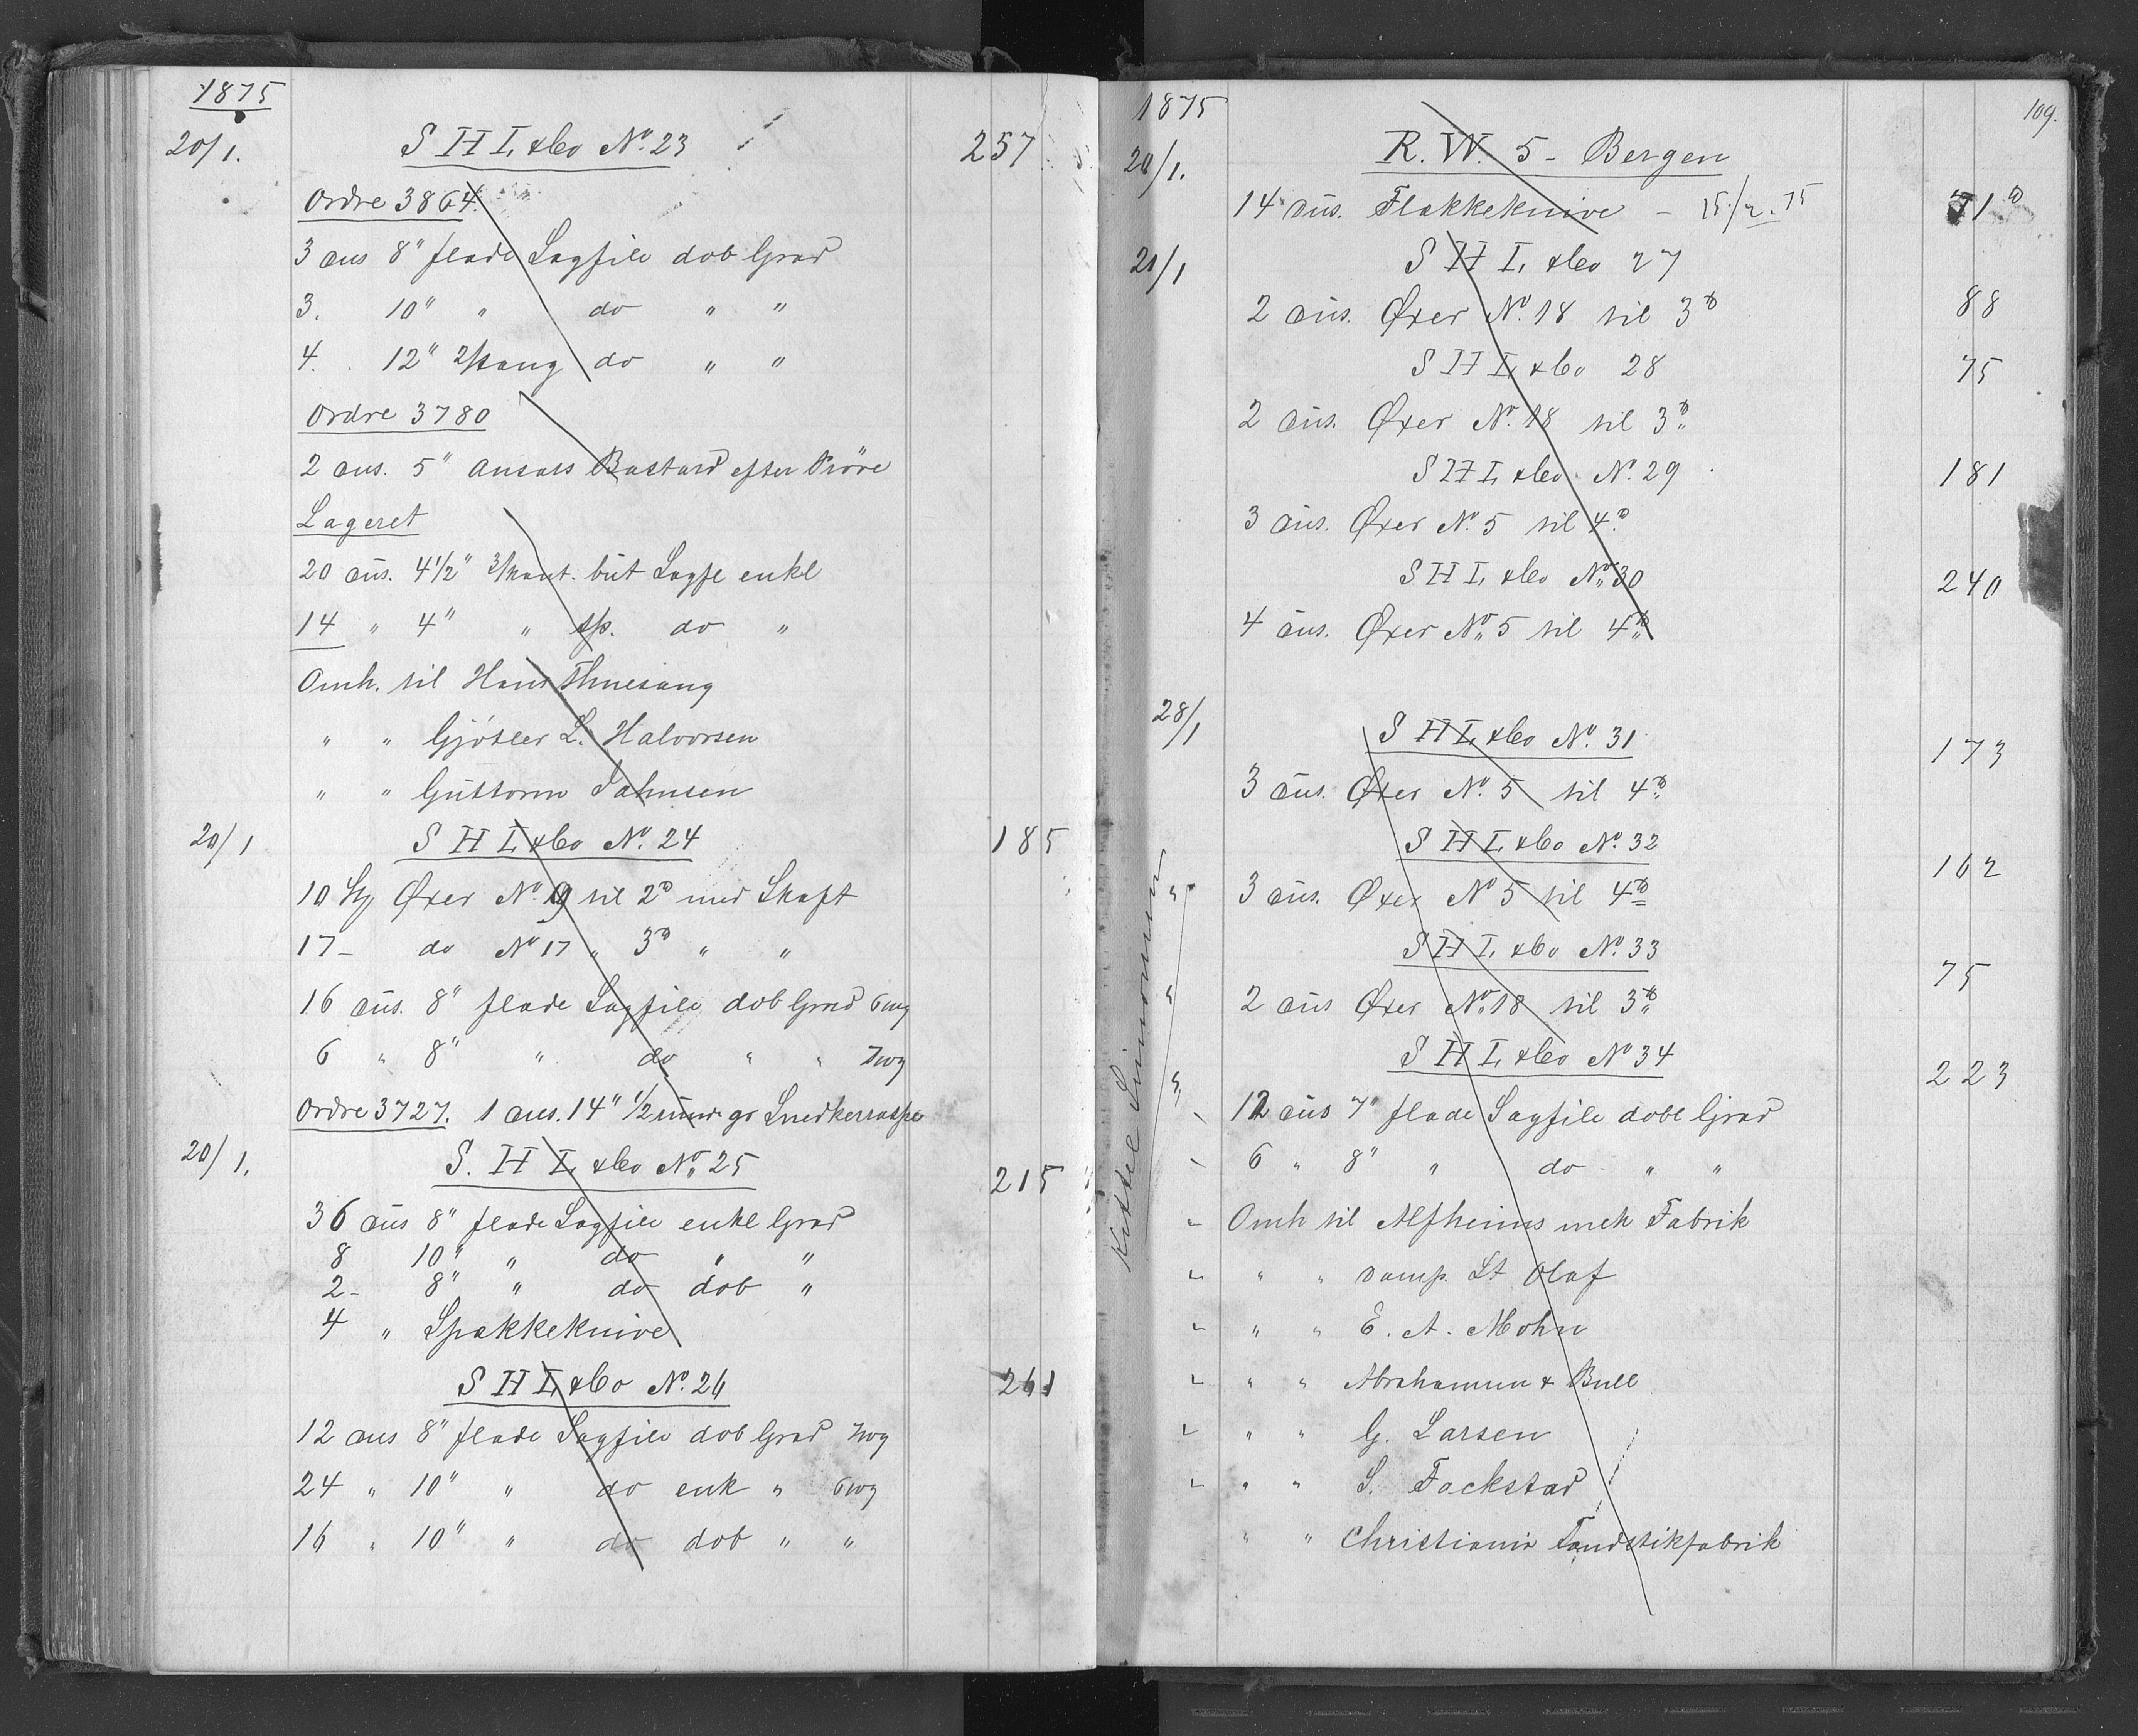 1875
20/1. S H L & Co No. 23 257
Ordre 3864.
3 dus 8" flade Sagfile dob Grad
3. 10" " do " "
4. . 12" do " "
Ordre 3780
2 dus. 5" ansats Bastard efter Prøve
Lageret
20 dus. 4 1/2" 3/kant. but Sagfl enkl
14 " 4" " sp. do "
Omh. til Hans Thuesang
" " Gjørtler L. Halvorsen
" " Guttorm Jahnsen
20/1 S H L & Co No. 24 185
10 St Øxer No. 9 til 2 med Skaft
17 - do No 17 " 3 " "
16 dus. 8" flade Sagfile dob Grad 6wg
6 " 8" " do " " 7wg
Ordre 3727. 1 dus. 14" 1/2 rund gr Snedkerraspe
20/1. S. H L & Co No. 25 215
36 dus 8" flade Sagfile enkl Grad
8 10" " do " "
2 - 8" " do dob "
4 " Spækkeknive
S H L & Co No. 26 261
12 dus 8" flade Sagfile dob Grad 7wg
24 " 10" " do enk " 6wg
16 " 10" " do dob " "
109.
1875
20/1. R. W. 5 - Bergen
14 dus. Flækkeknive - 15/2. 75 71
21/1 S H L & Co 27
2 dus. Øxer No. 18 til 3 88
S H L & Co 28 75
2 dus. Øxer No. 18 til 3
S H L & Co. No. 29 181
3 dus. Øxer No. 5 til 4
S H L & Co No. 30 240
4 dus. Øxer No. 5 til 4
28/1 S H L & Co No. 31 173
3 dus. Øxer No. 5 til 4
S H L & Co No. 32 162
" 3 dus. Øxer No 5 til 4
S H L & Co No. 33 75
" 2 dus Øxer No. 18 til 3
S H L & Co No 34 223
" 12 dus 7" flade Sagfile dobl Grad
6 " 8" " do " "
Omh til Alfheims mek Fabrik
" " Damp. St Olaf
" " E. A. Mohn
" " Abrahamsen & Bull
" " G. Larsen
" " S. Fockstad
" " Christiania Tændstikfabrik
Kittel Simonsen